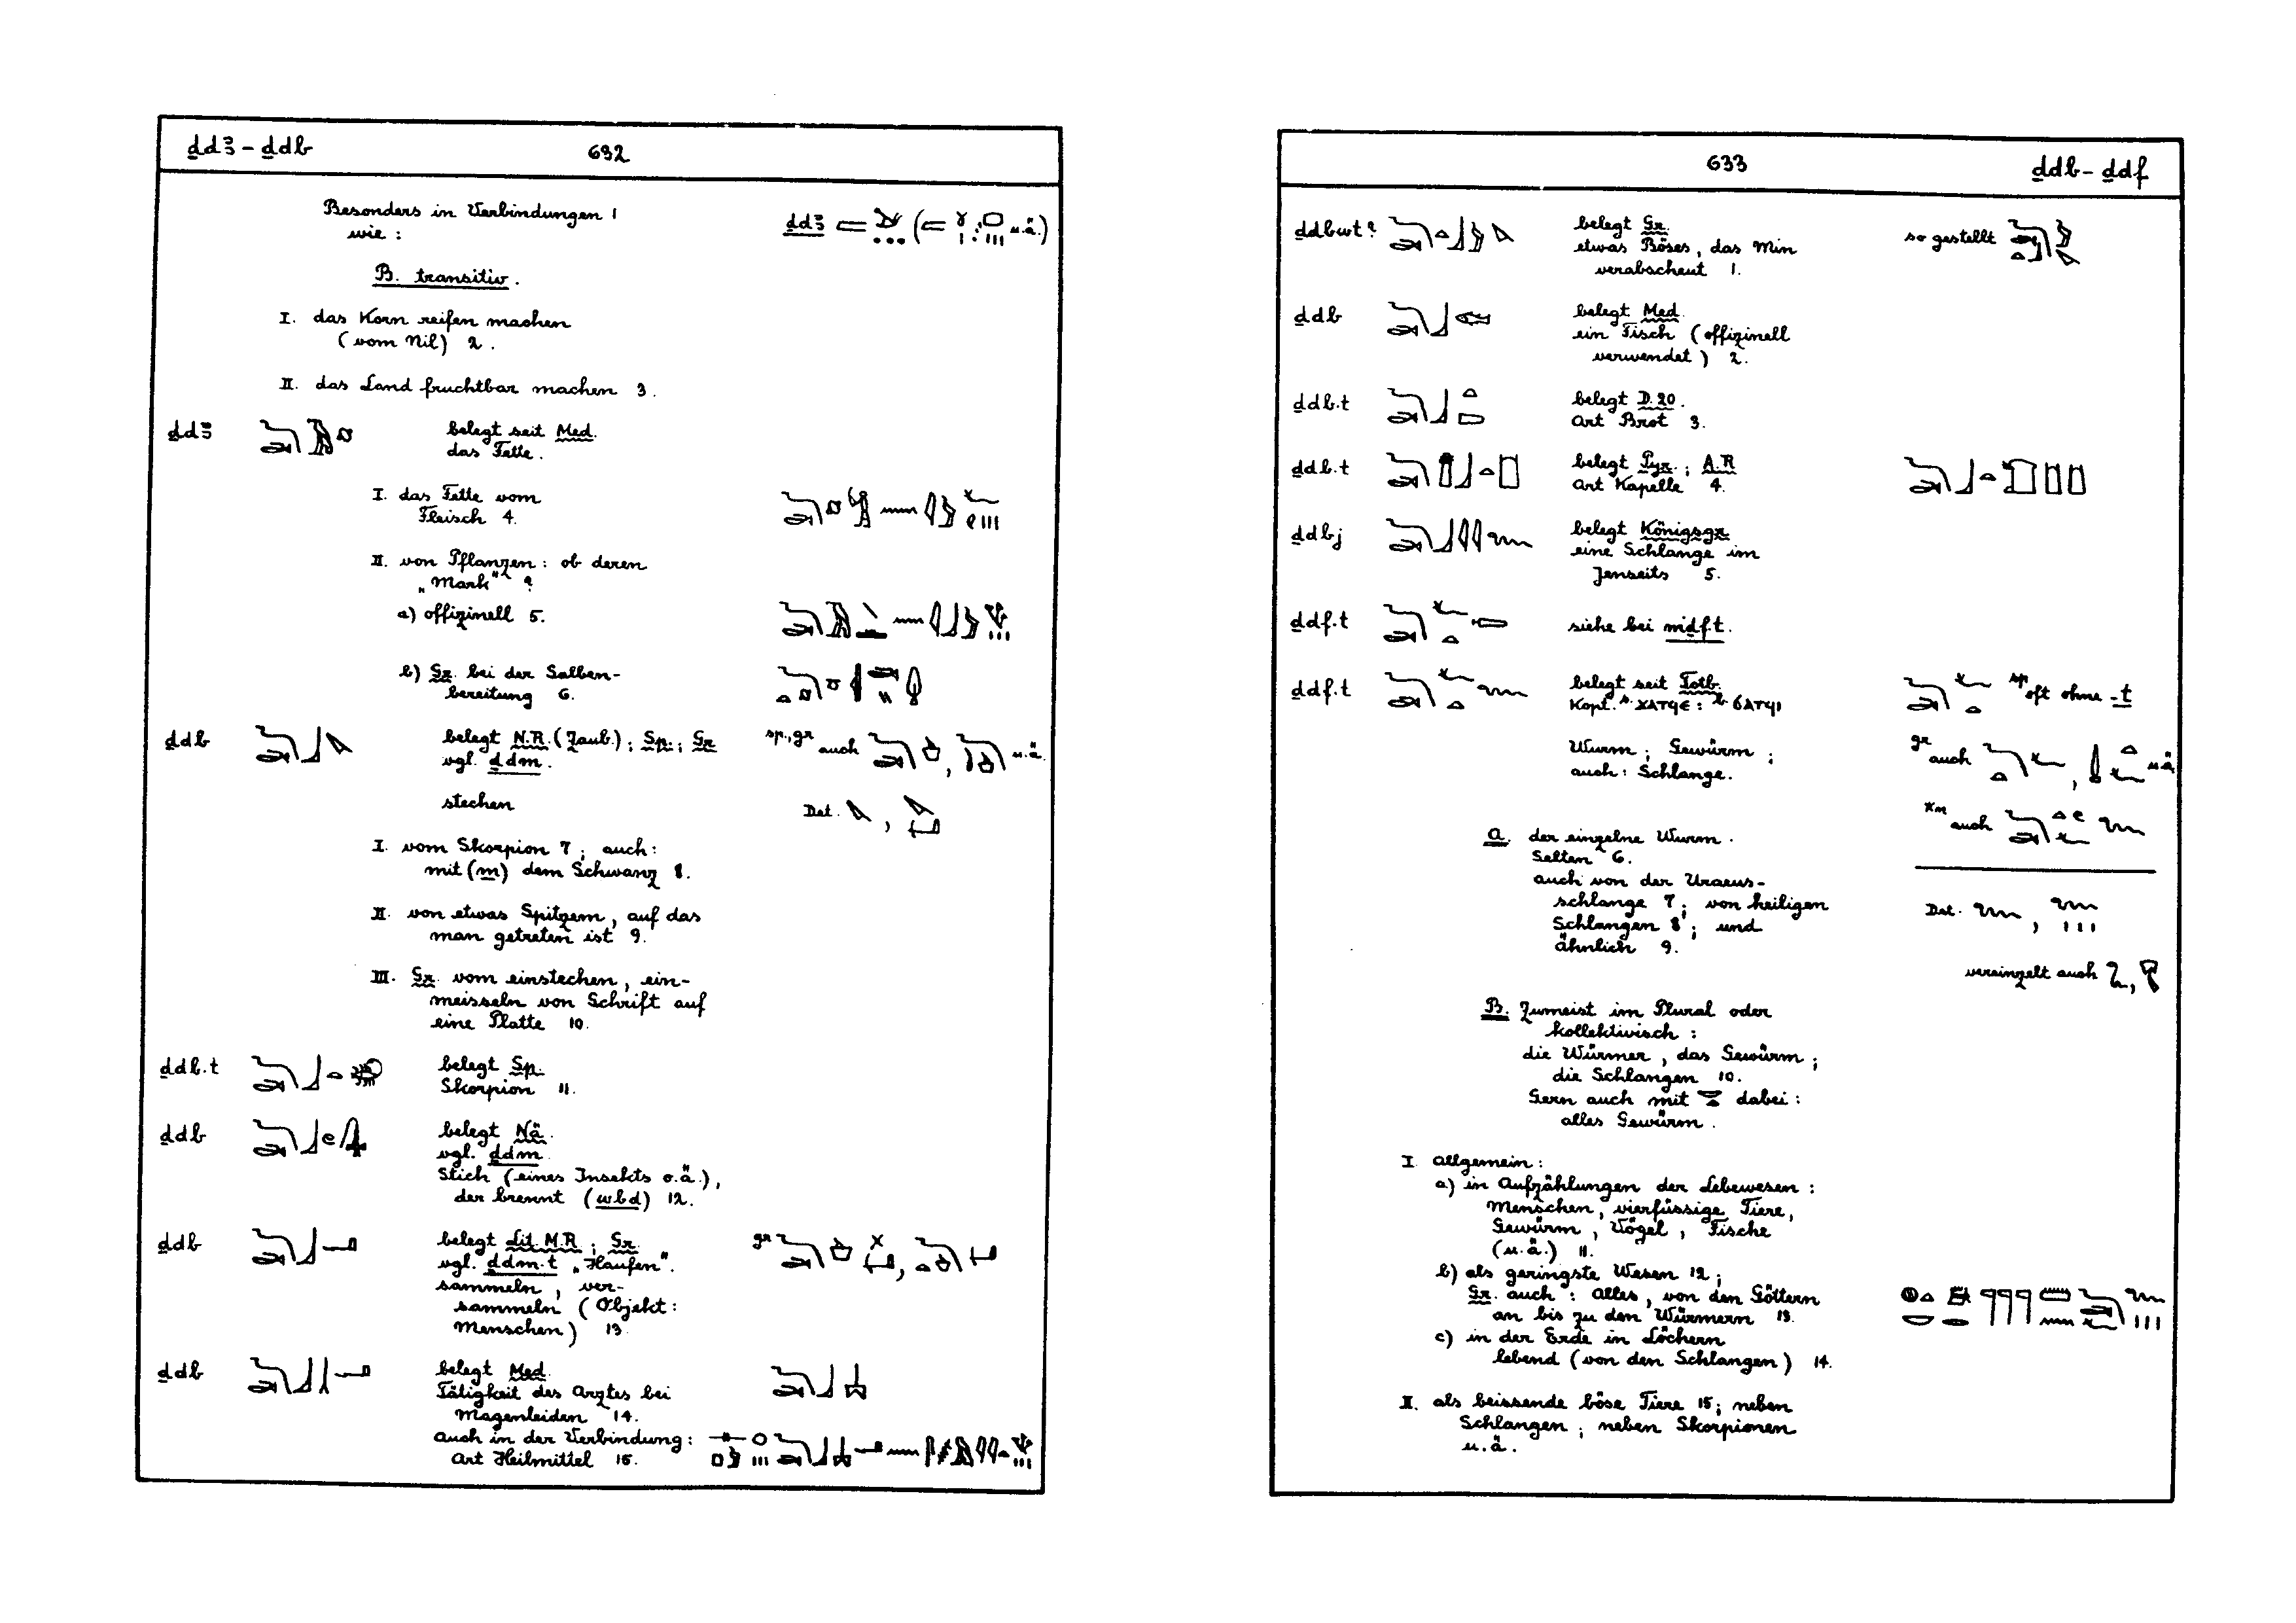 ḏdꜣ – ḏdb 632
Besonders in Verbindungen 1
wie : ḏdꜣ ( u.ä.)
B. transitiv.
I. das Korn reifen machen
(vom Nil) 2.
II. das Land fruchtbar machen 3.
ḏdꜣ belegt seit Med.
das Fette.
I. das Fette vom
Fleisch 4.
II. von Pflanzen : ob deren
„Mark“ ?
a) offizinell 5.
b) Gr. bei der Salben-
bereitung 6.
ḏdb belegt N.R. (Zaub.) ; Sp. ; Gr. sp., gr auch , u.ä.
vgl. ḏdm.
stechen Det. ,
I. vom Skorpion 7 ; auch :
mit (m) dem Schwanz 8.
II. von etwas Spitzem, auf das
man getreten ist 9.
III. Gr. vom einstechen, ein-
meisseln von Schrift auf
eine Platte 10.
ḏdb.t belegt Sp.
Skorpion 11.
ḏdb belegt Nä.
vgl. ḏdm.
Stich (eines Insekts o.ä.),
der brennt (wbd) 12.
ḏdb belegt Lit. M.R. ; Gr. gr ,
vgl. ḏdm.t „Haufen“.
sammeln, ver-
sammeln (Objekt :
Menschen) 13.
ḏdb belegt Med.
Tätigkeit des Arztes bei
Magenleiden 14.
auch in der Verbindung :
Art Heilmittel 15.
633 ḏdb – ḏdf
ḏdbwt ? belegt Gr. so gestellt
etwas Böses, das Min
verabscheut 1.
ḏdb belegt Med.
ein Fisch (offizinell
verwendet) 2.
ḏdb.t belegt D. 20.
Art Brot 3.
ḏdb.t belegt Pyr. ; A.R.
Art Kapelle 4.
ḏdbj belegt Königsgr.
eine Schlange im
Jenseits 5.
ḏdf.t siehe bei mḏdf.t.
ḏdf.t belegt seit Totb. sp oft ohne -t
Kopt. s. ϫⲁⲧϥⲉ : b ϭⲁⲧϥⲓ
Wurm ; Gewürm ; gr auch , u.ä.
auch : Schlange.
auch
A. der einzelne Wurm.
Selten 6.
auch von der Uraeus-
schlange 7 ; von heiligen Det. ,
Schlangen 8 ; und
ähnlich 9.
vereinzelt auch ,
B. Zumeist im Plural oder
kollektivisch :
die Würmer, das Gewürm ;
die Schlangen 10.
Gern auch mit dabei :
alles Gewürm.
I. allgemein :
a) in Aufzählungen der Lebewesen :
Menschen, vierfüssige Tiere,
Gewürm, Vögel, Fische
(u.ä.) 11.
b) als geringste Wesen 12 ;
Gr. auch : Alles, von den Göttern
an bis zu den Würmern 13.
c) in der Erde in Löchern
lebend (von den Schlangen) 14.
II. als beissende böse Tiere 15 ; neben
Schlangen ; neben Skorpionen
u.ä.